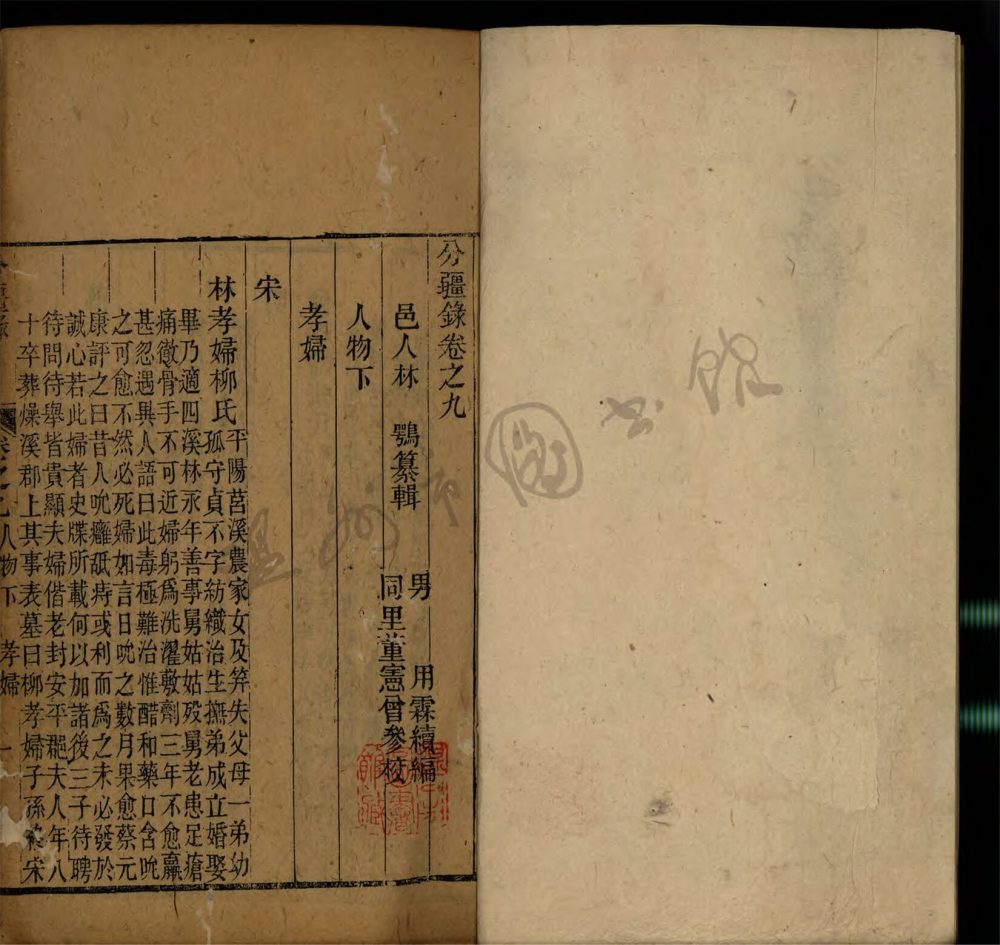 分疆錄卷之九
邑人林　鶚纂輯
男　　用霖續編
同里董憲曾參校
人物下
孝婦
宋
林孝婦柳氏
平陽莒溪農家女及笄失父母一弟幼
孤守貞不字紡織治生撫弟成立婚娶
畢乃適四溪林永年善事舅姑姑歿舅老患足瘡
痛徹骨手不可近婦躬爲洗濯敷劑三年不愈羸
甚忽遇異人語曰此毒極難治惟醋和藥口含吮
之可愈不然必死婦如言日吮之數月果愈蔡元
康評之曰昔人吮癰舐痔或利而爲之未必發於
誠心若此婦者史牒所載何以加諸後三子待聘
待問待舉皆貴顯夫婦偕老封安平郡夫人年八
十卒葬燥溪郡上其事表墓曰柳孝婦子孫宋
卷之九人物下　孝婦　一
溫州市圖書館